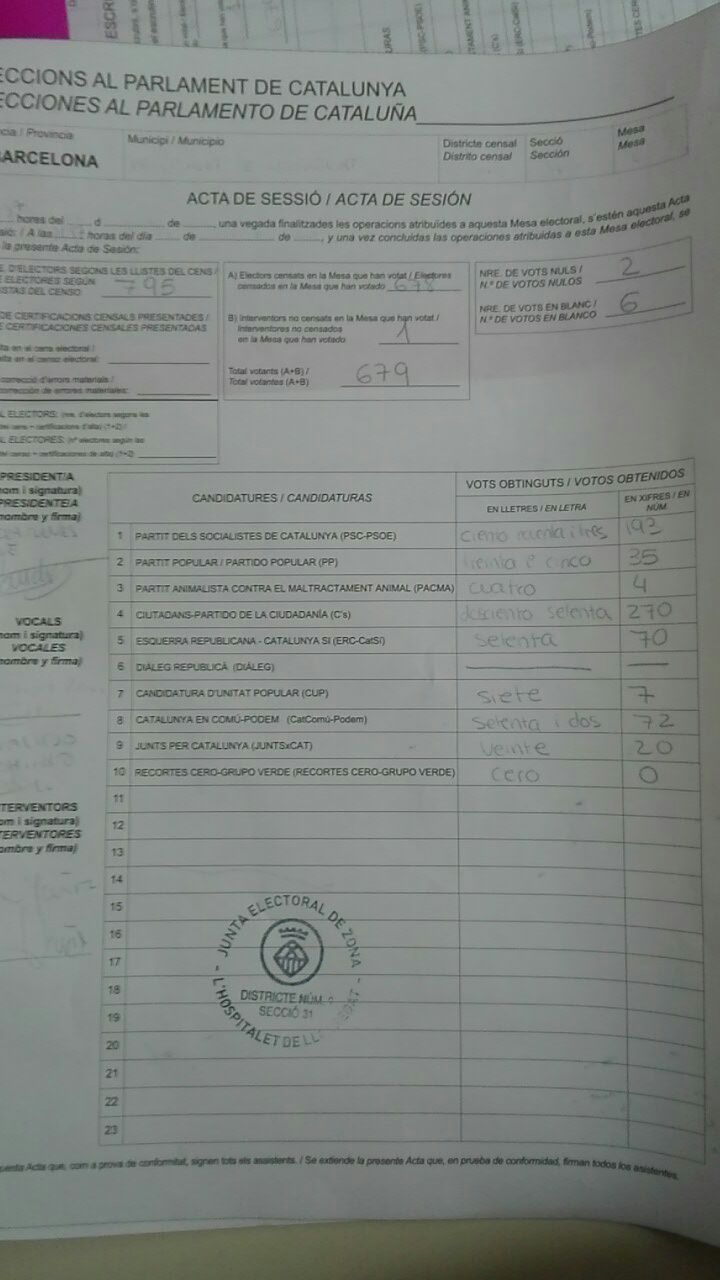 ECCIONS AL PARLAMENT DE CATALUNYA
ECCIONES AL PARLAMENTO DE CATALUÑA
cia / Provincia
Municipi / Municipio
Districte censal
Distrito censal
Secció
Sección
Mesa
Mesa
ARCELONA
ACTA DE SESSIÓ / ACTA DE SESIÓN
hores del d de , una vegada finalitzades les operacions atribuïdes a aquesta Mesa electoral, s'estén aquesta Acta
sió: / A las horas del día de de , y una vez concluidas las operaciones atribuidas a esta Mesa electoral, se
la presente Acta de Sesión:
E. D'ELECTORS SEGONS LES LLISTES DEL CENS /
E ELECTORES SEGÚN
ISTAS DEL CENSO 795
DE CERTIFICACIONS CENSALS PRESENTADES /
E CERTIFICACIONES CENSALES PRESENTADAS
lta en el cens electoral /
alta en el censo electoral:
correcció d'errors materials /
corrección de errores materiales:
L ELECTORS: (nre. d'electors segons les
del cens + certificacions d'alta) (1+2) /
L ELECTORES: (nº electores según las
del censo + certificaciones de alta) (1+2)
A) Electors censats en la Mesa que han votat / Electores
censados en la Mesa que han votado 678
B) Interventors no censats en la Mesa que han votat /
Interventores no censados
en la Mesa que han votado 1
Total votants (A+B) /
Total votantes (A+B) 679
NRE. DE VOTS NULS /
N.º DE VOTOS NULOS 2
NRE. DE VOTS EN BLANC /
N.º DE VOTOS EN BLANCO 6
PRESIDENT/A
nom i signatura)
PRESIDENTE/A
nombre y firma)
VOCALS
nom i signatura)
VOCALES
nombre y firma)
TERVENTORS
om i signatura)
TERVENTORES
ombre y firma)
CANDIDATURES / CANDIDATURAS
VOTS OBTINGUTS / VOTOS OBTENIDOS
EN LLETRES / EN LETRA
EN XIFRES / EN
NÚM.
1 PARTIT DELS SOCIALISTES DE CATALUNYA (PSC-PSOE) ciento i tres 193
2 PARTIT POPULAR / PARTIDO POPULAR (PP) treinta e cinco 35
3 PARTIT ANIMALISTA CONTRA EL MALTRACTAMENT ANIMAL (PACMA) cuatro 4
4 CIUTADANS-PARTIDO DE LA CIUDADANÍA (C's) dosciento setenta 270
5 ESQUERRA REPUBLICANA - CATALUNYA SÍ (ERC-CatSí) setenta 70
6 DIÀLEG REPUBLICÀ (DIÀLEG)
7 CANDIDATURA D'UNITAT POPULAR (CUP) siete 7
8 CATALUNYA EN COMÚ-PODEM (CatComú-Podem) setenta i dos 72
9 JUNTS PER CATALUNYA (JUNTSxCAT) veinte 20
10 RECORTES CERO-GRUPO VERDE (RECORTES CERO-GRUPO VERDE) cero 0
11
12
13
14
15
16
17
18
19
20
21
22
23
JUNTA ELECTORAL DE ZONA
DISTRICTE NÚM.
SECCIÓ 31
L'HOSPITALET DE
questa Acta que, com a prova de conformitat, signen tots els assistents. / Se extiende la presente Acta que, en prueba de conformidad, firman todos los asistentes.